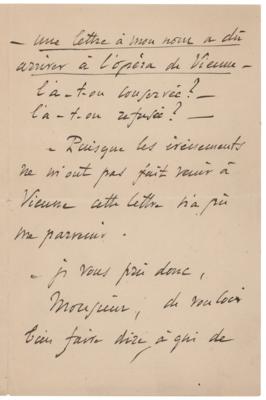 - une lettre à mon nom a dû
arriver à l'opéra de Vienne -
l'a-t-on conservée? -
l'a-t-on refusée? -
- Puisque les événements
ne m'ont pas fait venir à
Vienne cette lettre n'a pu
me parvenir.
- je vous prie donc,
Monsieur, de vouloir
bien faire dire, à qui de